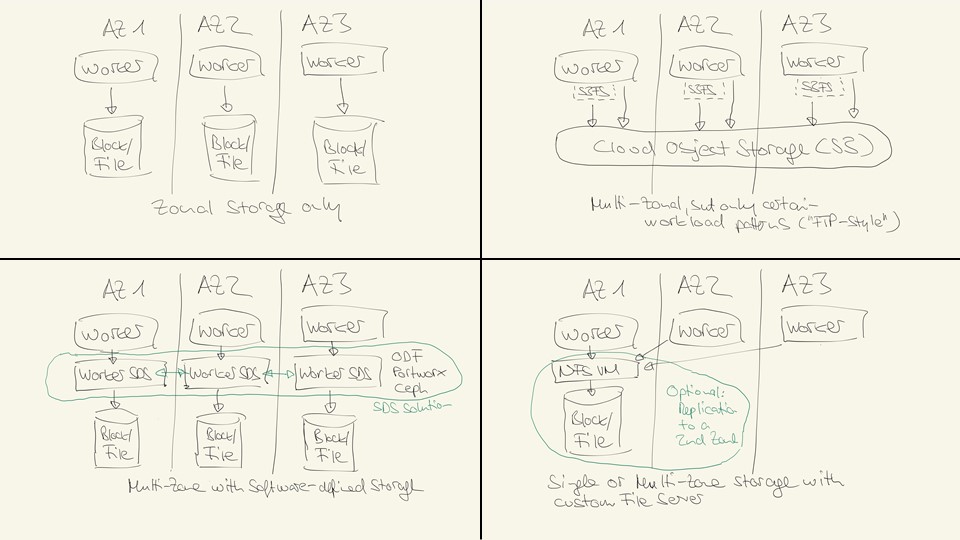 AZ1 AZ2 AZ3
Worker Worker Worker
Block/ Block/ Block/
File File File
Zonal Storage only
AZ1 AZ2 AZ3
Worker Worker Worker
S3FS S3FS S3FS
Cloud Object Storage (S3)
Multi-Zonal, but only certain
workload patterns ("FTP-Style")
AZ1 AZ2 AZ3
Worker Worker Worker
Worker SDS Worker SDS Worker SDS
ODF
Portworx
Ceph
SDS Solution
Block/ Block/ Block/
File File File
Multi-Zone with Software-defined Storage
AZ1 AZ2 AZ3
Worker Worker Worker
NFS VM
Block/
File
Optional:
Replication
to a
2nd Zone
Single or Multi-Zone Storage with
custom File Server